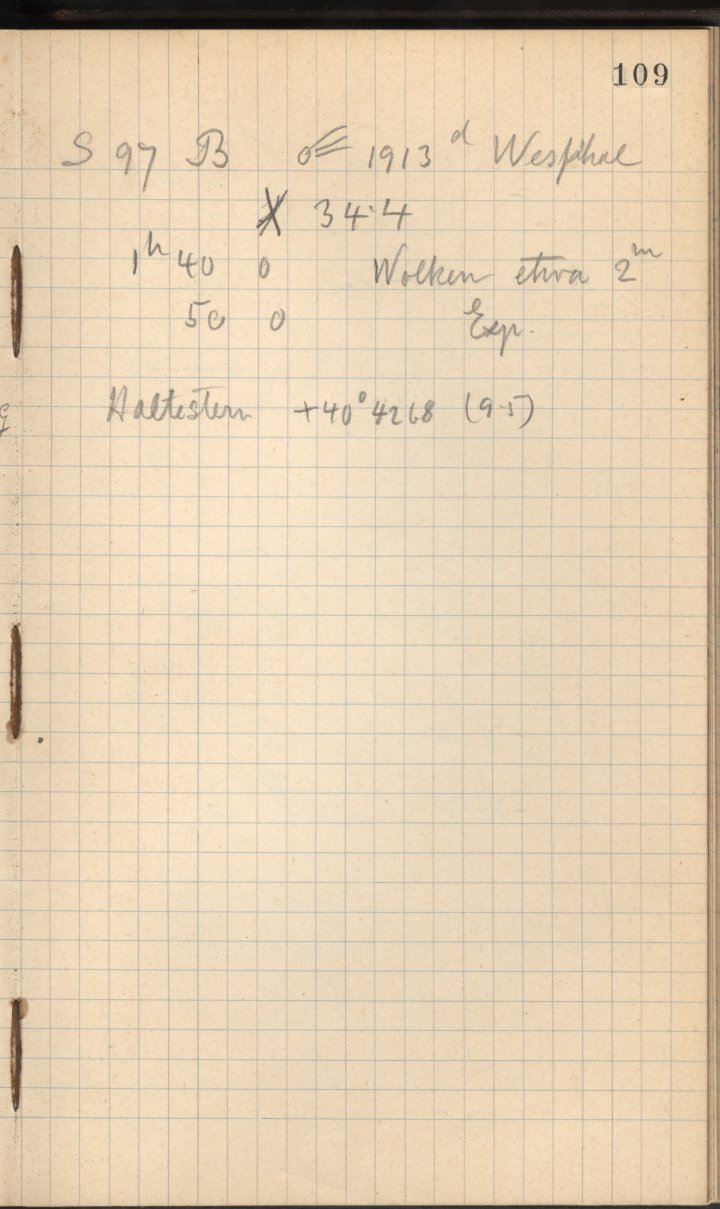 109
S 97 B ☄ 1913 d Westphal
X 34.4
1h 40 0 Wolken etwa 2m
50 0 Exp.
Haltestern +40° 4268 (9.5)